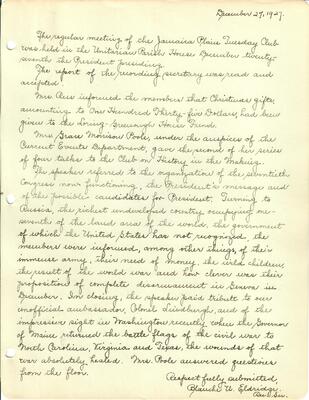 December 27, 1927.
The regular meeting of the Jamaica Plain Tuesday Club
was held in the Unitarian Parish House December twenty-
seventh the President presiding.
The report of the recording secretary was read and
accepted.
Mrs. informed the members that Christmas gifts,
amounting to One Hundred Thirty-five Dollars, had been
given to the Loring-Greenough House Fund.
Mrs. Grace Morrison Poole, under the auspices of the
Current Events Department, gave the second of her series
of four talks to the Club on History in the Making.
The speaker referred to the organization of the seventieth
Congress now functioning, the President's message and
of the possible candidates for President. Turning to
Russia, the richest undeveloped country occupying one-
seventh of the land area of the world, the government
of which the United States has not recognized, the
members were informed, among other things, of the
immense army, their need of money, the wild children,
the result of the world war and how clever was their
proposition of complete disarmament in Geneva in
December. In closing, the speaker paid tribute to our
unofficial ambassador, Colonel Lindburgh, and of the
impressive sight in Washington recently when the Governor
of Maine returned the battle flags of the civil war to
North Carolina, Virginia and Texas, the wounds of that
war absolutely healed. Mrs. Poole answered questions
from the floor.
Respectfully submitted,
Blanche U. Eldridge,
Rec. Sec.